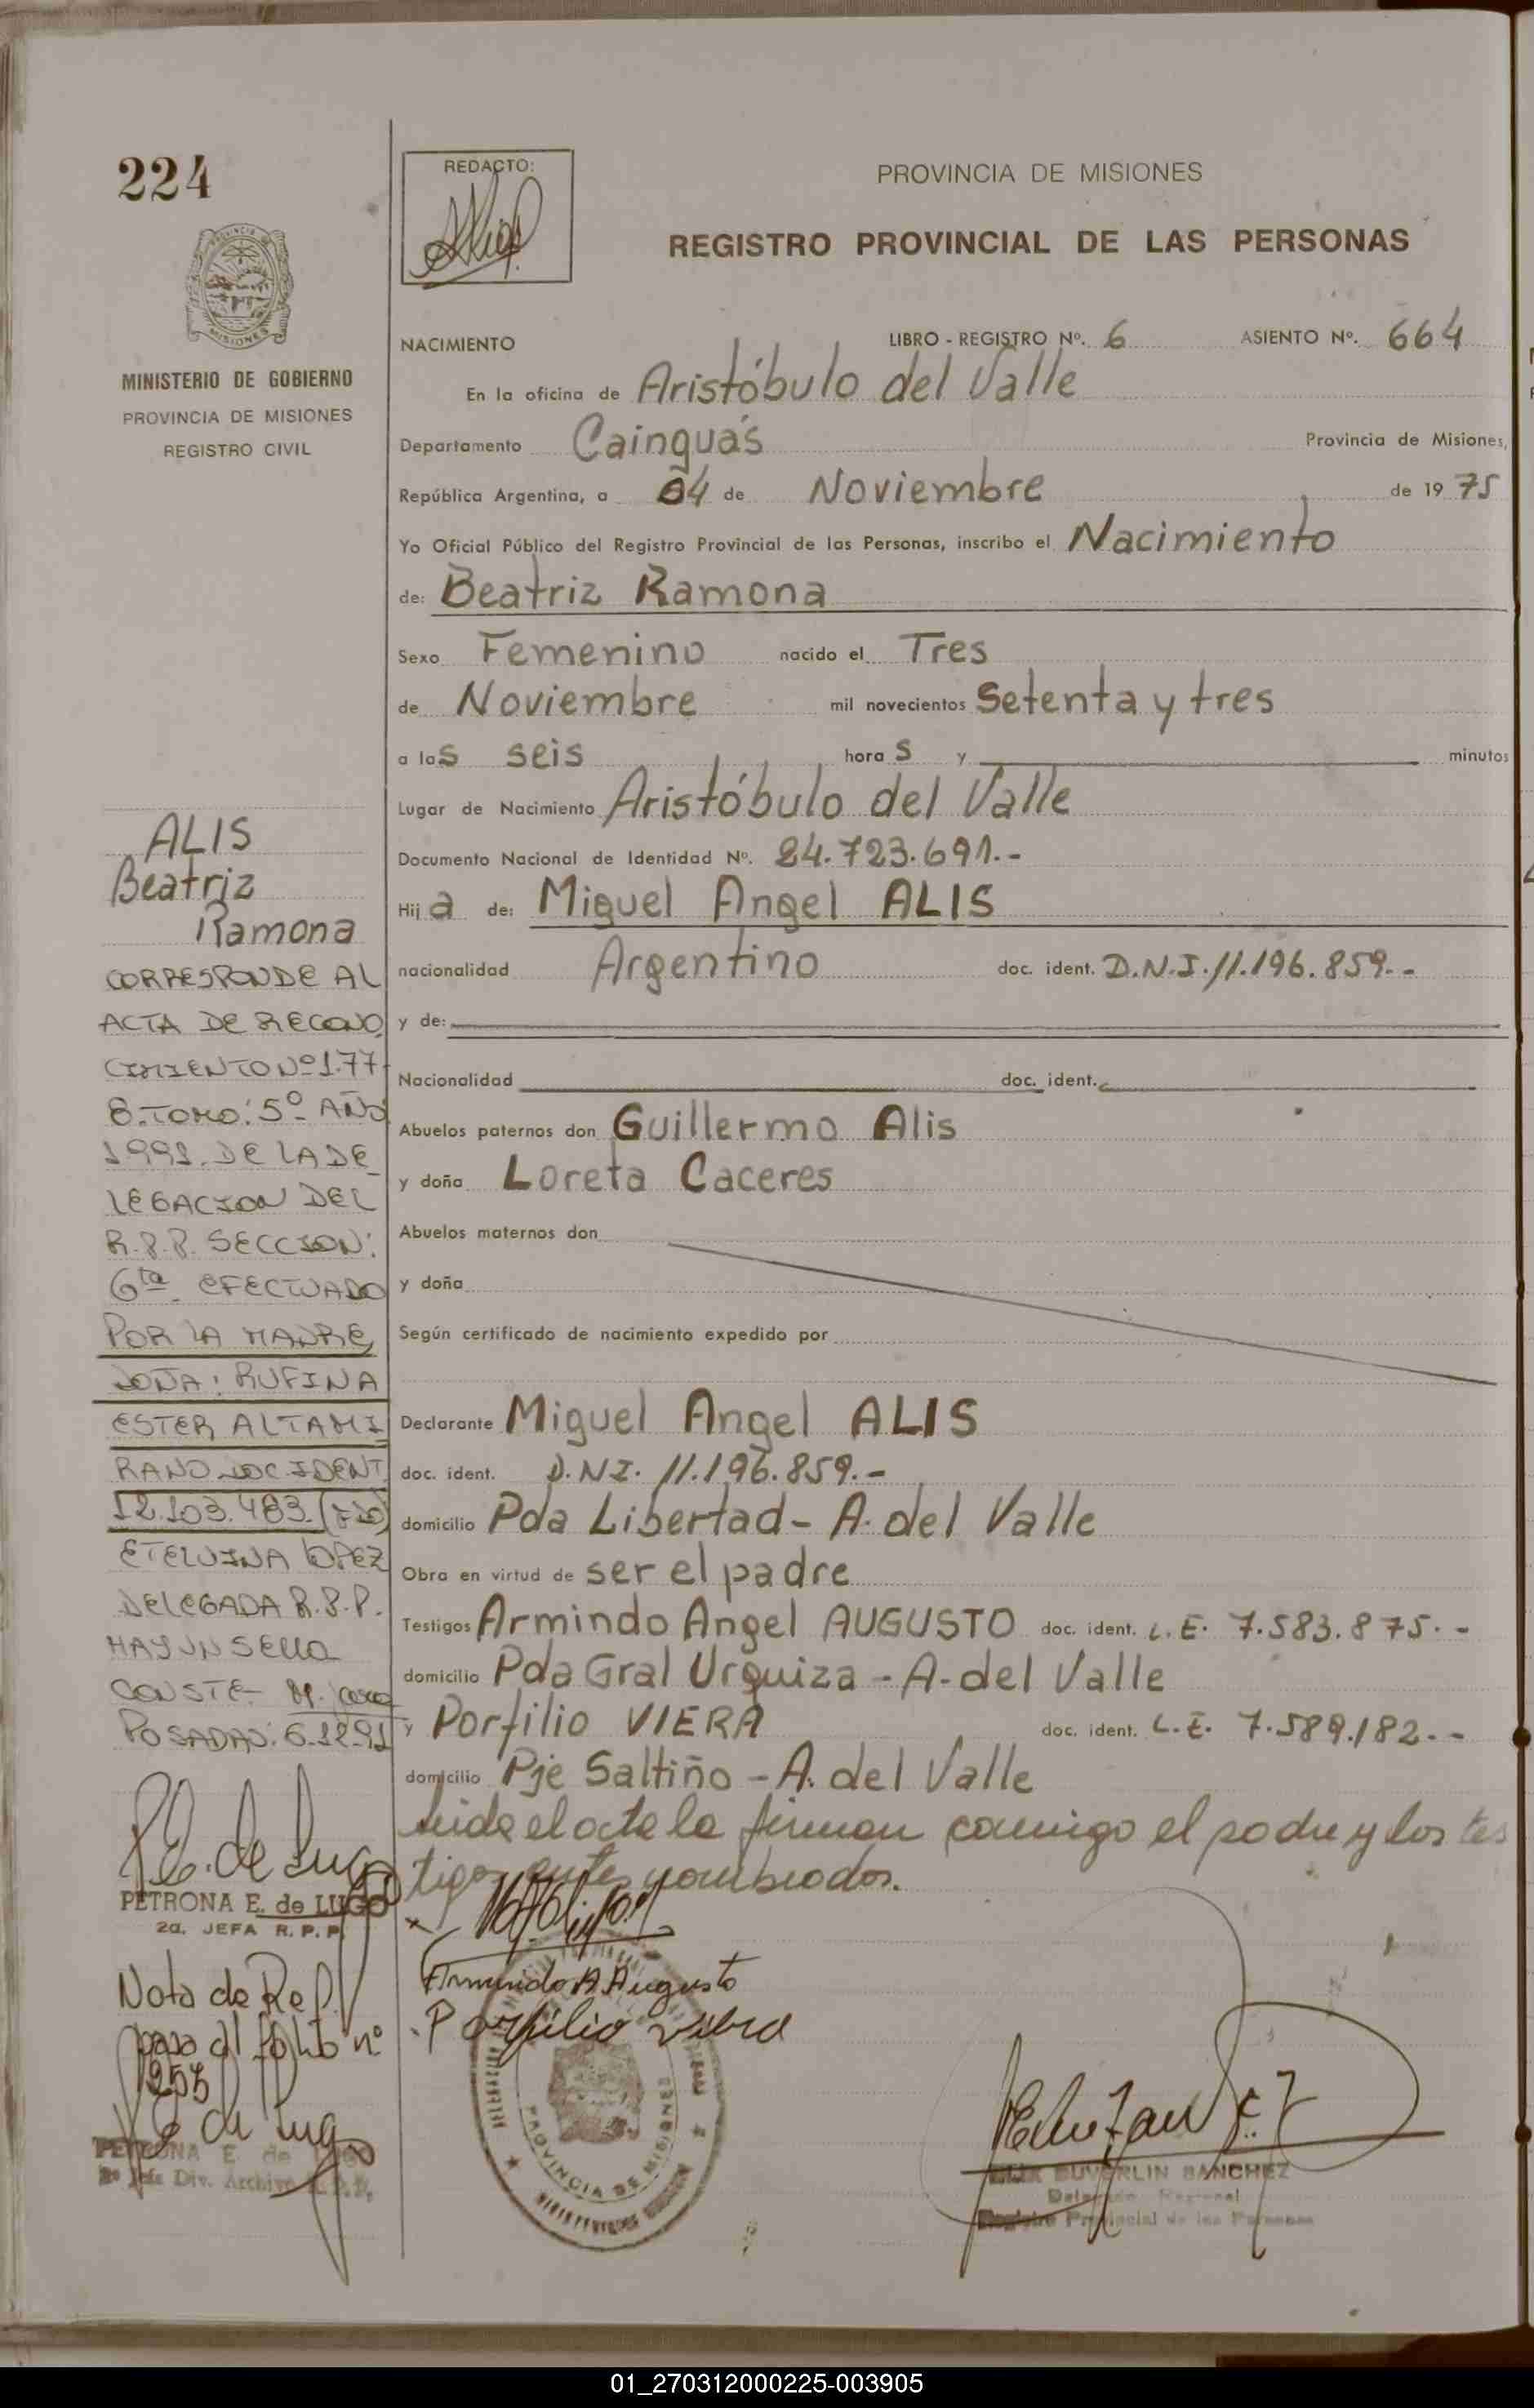 224
REDACTO:
PROVINCIA DE MISIONES
REGISTRO PROVINCIAL DE LAS PERSONAS
PROVINCIA DE
MISIONES
MINISTERIO DE GOBIERNO
PROVINCIA DE MISIONES
REGISTRO CIVIL
NACIMIENTO LIBRO - REGISTRO Nº. 6 ASIENTO Nº. 664
En la oficina de Aristóbulo del Valle
Departamento Cainguás Provincia de Misiones,
República Argentina, a 04 de Noviembre de 1975
Yo Oficial Público del Registro Provincial de las Personas, inscribo el Nacimiento
de: Beatriz Ramona
Sexo Femenino nacido el Tres
de Noviembre mil novecientos Setenta y tres
a las seis horas y minutos
Lugar de Nacimiento Aristóbulo del Valle
Documento Nacional de Identidad Nº. 24.723.691.-
Hija de: Miguel Angel ALIS
nacionalidad Argentino doc. ident. D.N.I. 11.196.859.-
y de:
Nacionalidad doc. ident.
Abuelos paternos don Guillermo Alis
y doña Loreta Caceres
Abuelos maternos don
y doña
Según certificado de nacimiento expedido por
Declarante Miguel Angel ALIS
doc. ident. D.N.I. 11.196.859.-
domicilio Pda Libertad - A. del Valle
Obra en virtud de ser el padre
Testigos Armindo Angel AUGUSTO doc. ident. L.E. 7.583.875.-
domicilio Pda Gral Urquiza - A. del Valle
y Porfilio VIERA doc. ident. L.E. 7.589.182.-
domicilio Pje Saltiño - A. del Valle
leida el acta la firman conmigo el padre y los tes
tigos antes nombrados.
Armindo A Augusto
Porfilio Viera
PROVINCIA DE MISIONES
ELIX DUVERLIN SANCHEZ
Delegado Regional
Registro Provincial de las Personas
ALIS
Beatriz
Ramona
CORRESPONDE AL
ACTA DE RECONO
CIMIENTO Nº 1.77
8. TOMO: 5º AÑO
1991. DE LA DE_
LEGACION DEL
R.P.P. SECCION:
6ta. EFECTUADO
POR LA MADRE
DOÑA: RUFINA
ESTER ALTAMI
RANO DOC IDENT
12.103.483.
ETELVINA LOPEZ
DELEGADA R.P.P.
HAY UN SELLO
CONSTE-
POSADAS: 6-12-91
P.E. de Lugo
PETRONA E. de LUGO
2a. JEFA R.P.P.
Nota de Ref.
pasa al folio nº
PETRONA E de LUGO
2º Jefe Div. Archivo R.P.P.
01_270312000225-003905